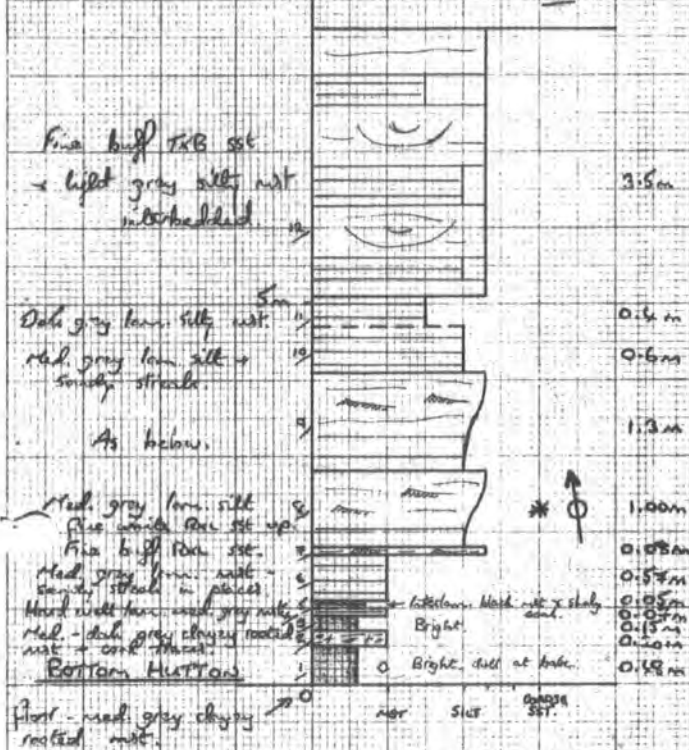 Fine buff TXB sst
+ light grey silty mst
interbedded.
12
3.5m
5m
Dark grey lam. silty mst.
11
0.4 m
Med. grey lam. silt +
sandy streaks
10
0.6m
As below.
9
1.3m
Med. grey lam. silt
Fine white sst up.
8
1.00m
Fine buff sst.
7
0.08m
Med. grey lam. mst -
sandy streaks in places
6
0.57m
Hard well lam. med. grey mst
5
Interlam. black mst + shaly
coal.
0.05m
Med. - dark grey clayey rooted
mst + coal traces.
Bright
BOTTOM HUTTON
1
Bright, dull at base.
0
floor - med. grey clayey
rooted mst.
MST
SILT
COARSE
SST.